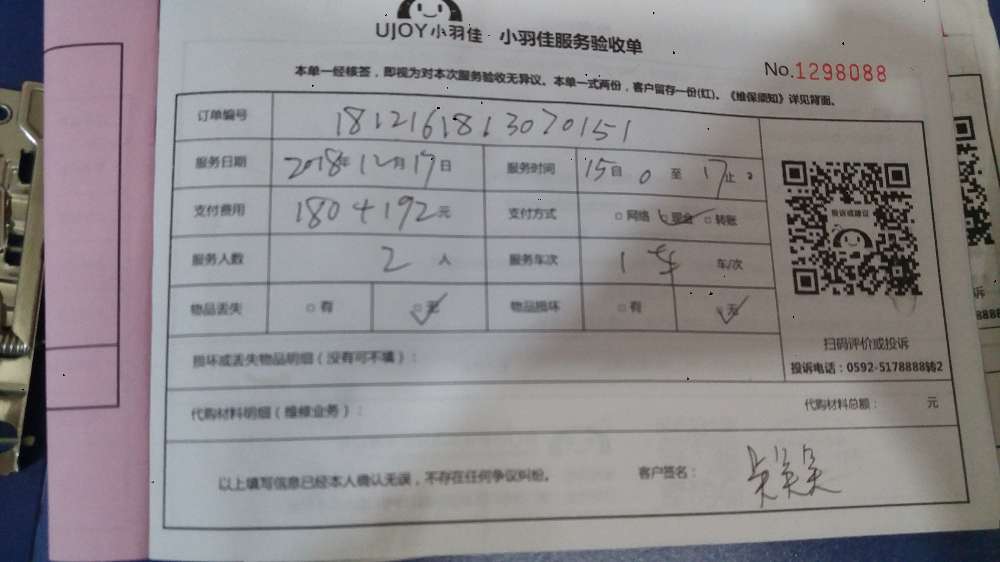 UJOY小羽佳 小羽佳服务验收单
No.1298088
本单一经核签，即视为对本次服务验收无异议。本单一式两份，客户留存一份(红)。《维保须知》详见背面。
订单编号 1812161813070151
服务日期 2018年12月17日 服务时间 15自 0 至 17止
支付费用 180+192元 支付方式 □网络 □现金 □转账
投诉或建议
服务人数 2人 服务车次 1车 车/次
物品丢失 □有 □无 物品损坏 □有 □无
扫码评价或投诉
损坏或丢失物品明细（没有可不填）：
投诉电话：0592-5178888转2
代购材料明细（维修业务）： 代购材料总额： 元
以上填写信息已经本人确认无误，不存在任何争议纠纷。 客户签名：